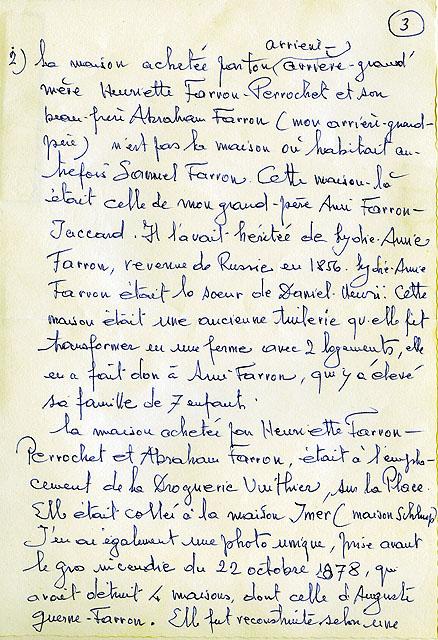 3
arrière-
2) La maison achetée par ton (arrière-grand'
mère Henriette Farron-Perrochet et son
beau-frère Abraham Farron (mon arrière-grand-
père) n'est pas la maison où habitait au-
trefois Samuel Farron. Cette maison-là
était celle de mon grand-père Ami Farron-
Jaccard. Il l'avait héritée de Lydie-Annie
Farron, revenue de Russie en 1856. Lydie-Annie
Farron était la soeur de Daniel-Henri. Cette
maison était une ancienne tuilerie qu'elle fit
transformer en une ferme avec 2 logements, elle
en a fait don à Ami Farron, qui y a élevé
sa famille de 7 enfants.
La maison achetée par Henriette Farron-
Perrochet et Abraham Farron, était à l'empla-
cement de la Droguerie Vuithier, sur la Place.
Elle était collée à la maison Imer (maison Schlup)
J'en ai également une photo unique, prise avant
le gros incendie du 22 octobre 1878, qui
avait détruit 4 maisons, dont celle d'Auguste
Guerne-Farron. Elle fut reconstruite selon une